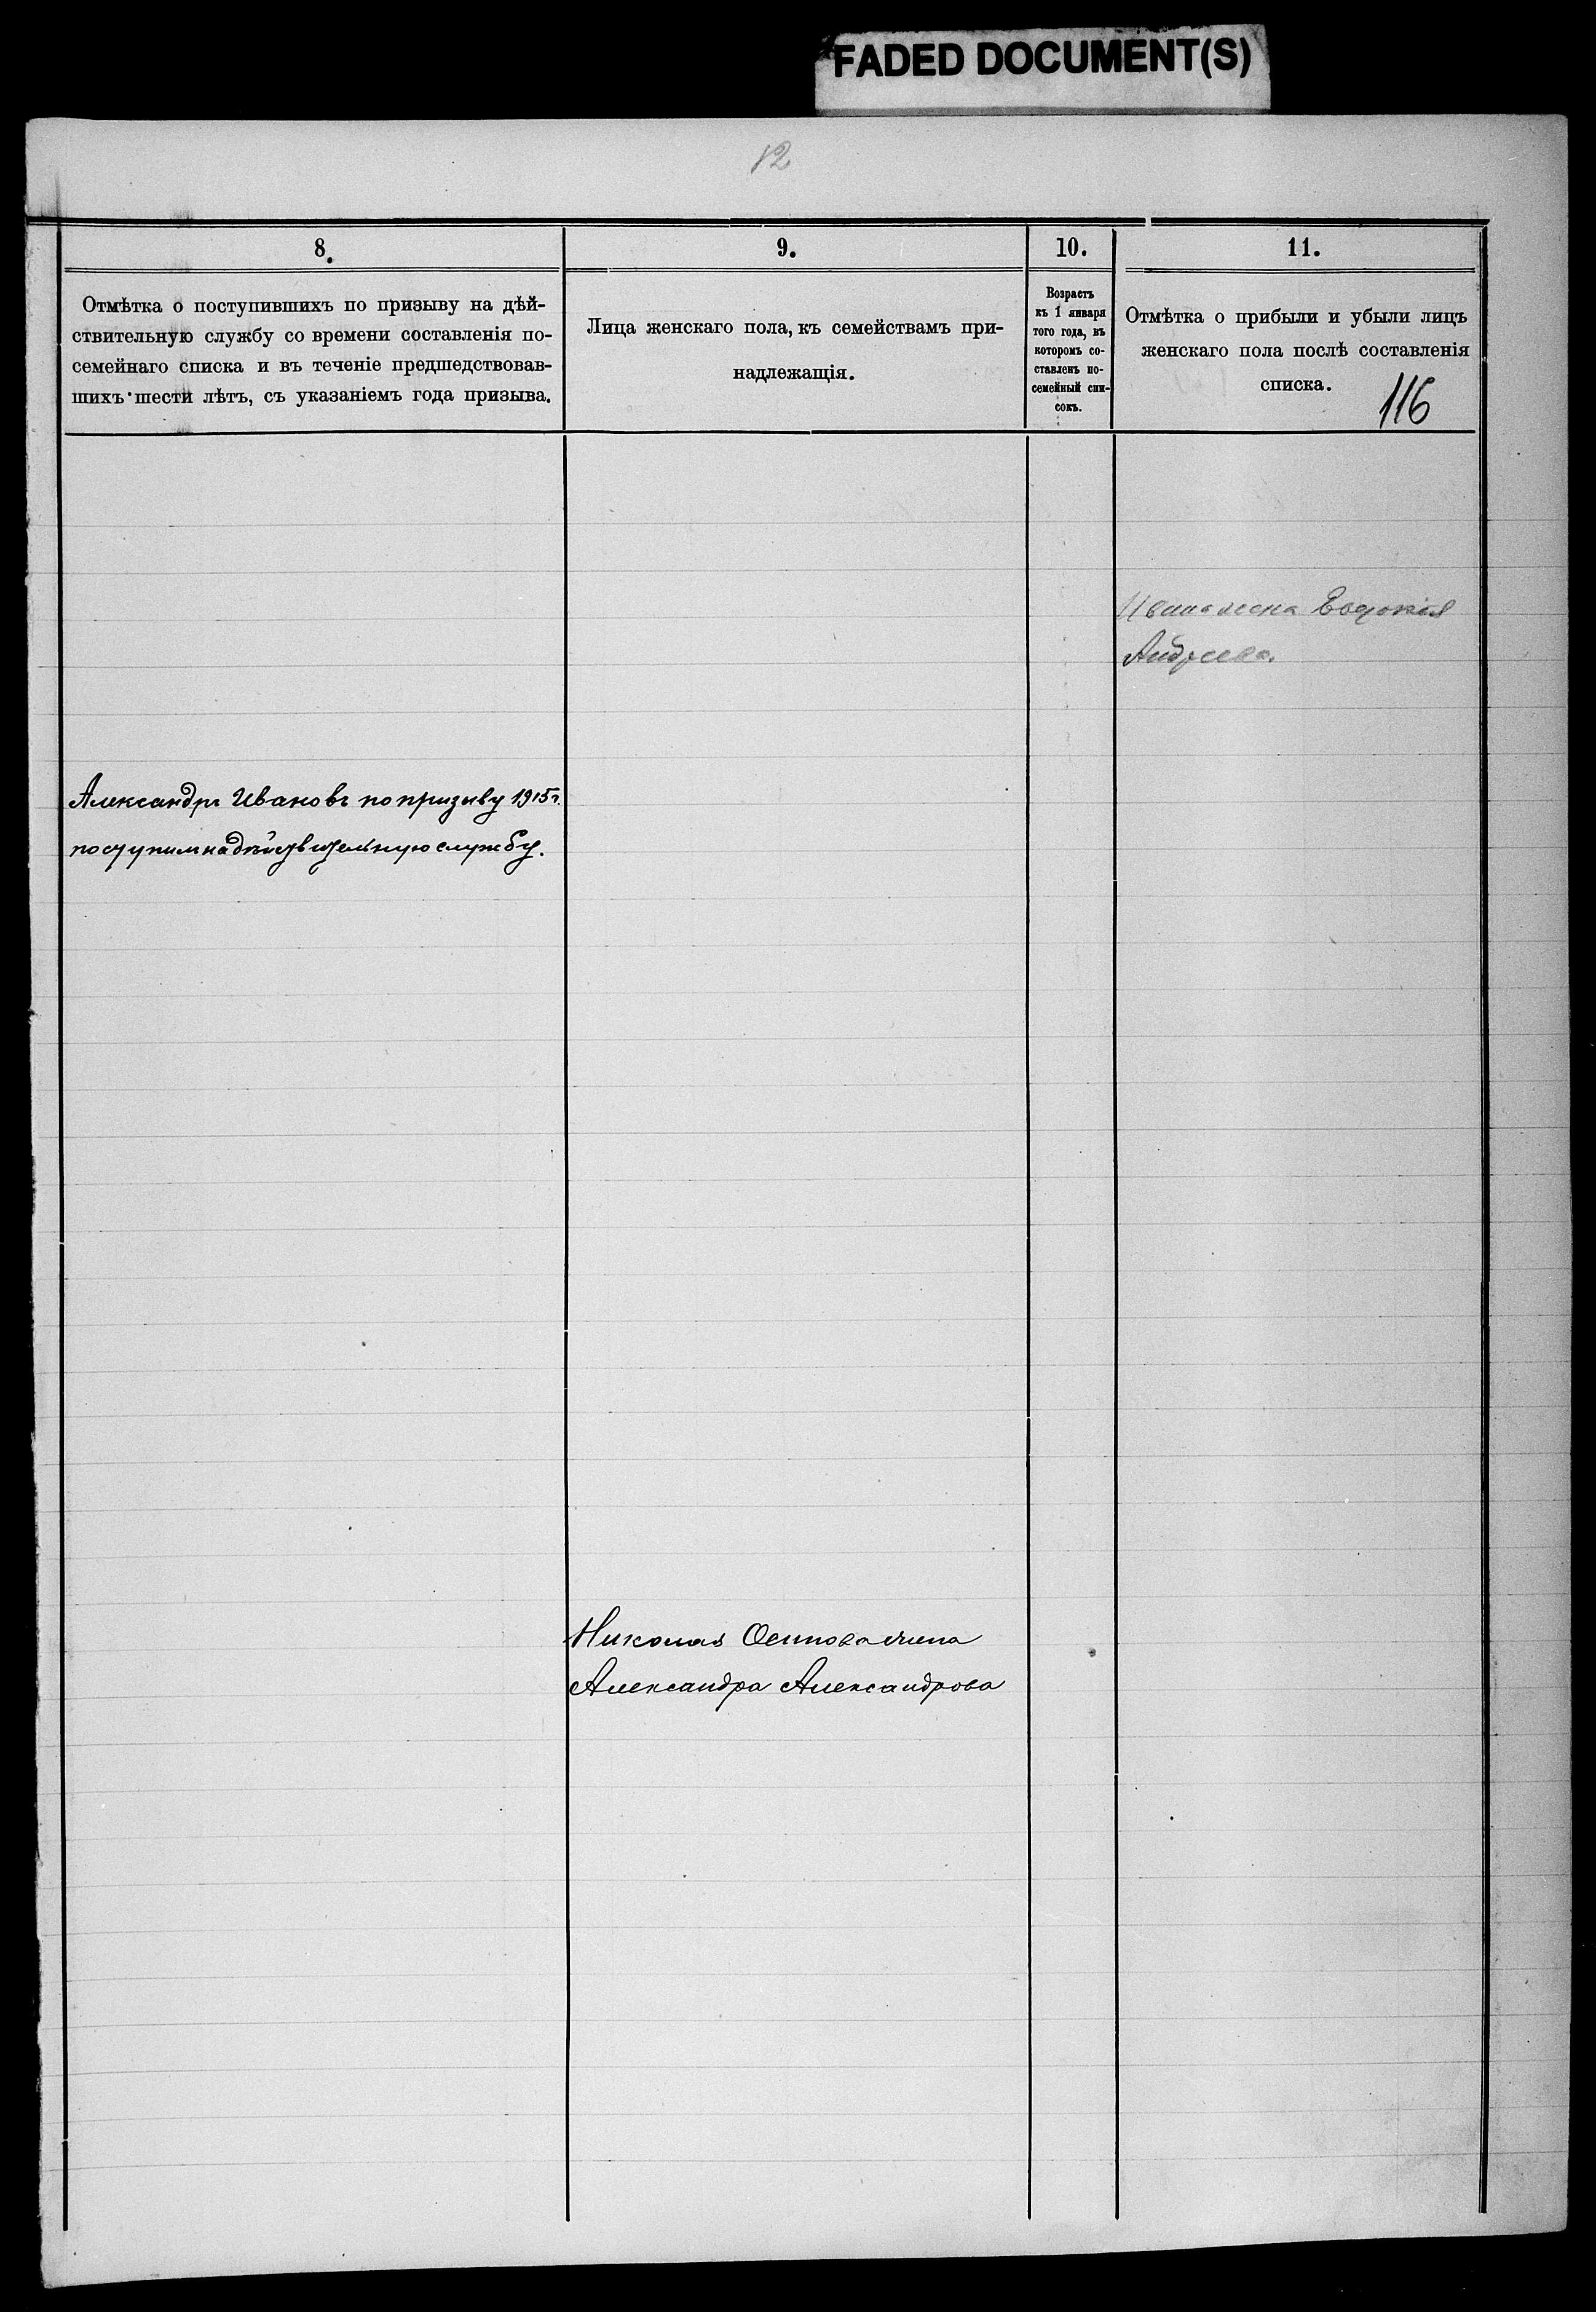 FADED DOCUMENT(S)
12
8.
Отмѣтка о поступившихъ по призыву на дѣй-
ствительную службу со времени составленія по-
семейнаго списка и въ теченіе предшедствовав-
шихъ шести лѣтъ, съ указаніемъ года призыва.
9.
Лица женскаго пола, къ семействамъ при-
надлежащія.
10.
Возрастъ
къ 1 января
того года, въ
которомъ со-
ставленъ по-
семейный спи-
сокъ.
11.
Отмѣтка о прибыли и убыли лицъ
женскаго пола послѣ составленія
списка.
116
Ивана жена Евдокія
Андреева.
Александръ Ивановъ по призыву 1915 г.
поступилъ на дѣйствительную службу.
Николая Осипова жена
Александра Александрова